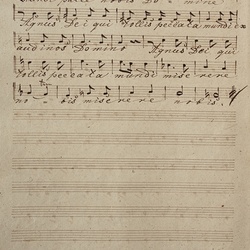 nobis Do- mine
Agnus Dei qui tollis peccata mundi ex
audi nos Domine Agnus Dei qui
tollis peccata mundi mise rere
no- bis mise re re nobis.